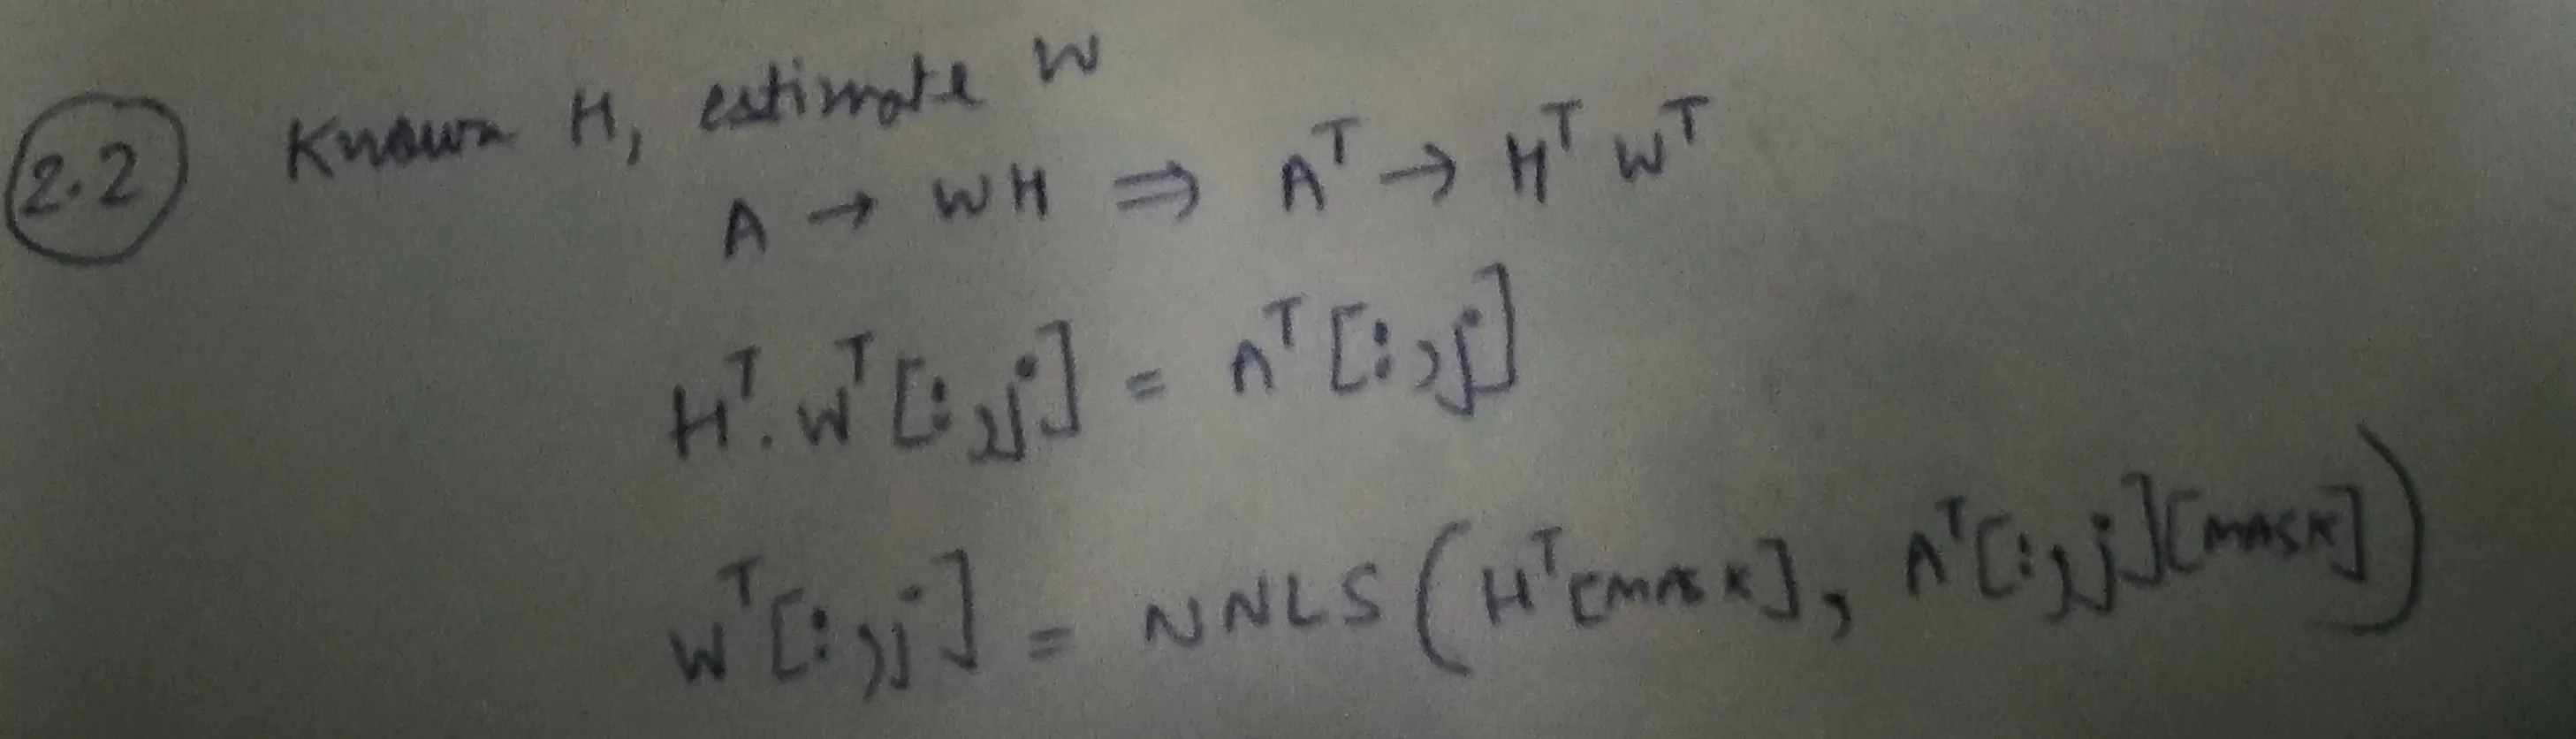 2.2 Known H, estimate W
A → WH ⇒ Aᵀ → Hᵀ Wᵀ
Hᵀ. Wᵀ[:,j] = Aᵀ[:,j]
Wᵀ[:,j] = NNLS(Hᵀ[MASK], Aᵀ[:,j][MASK])